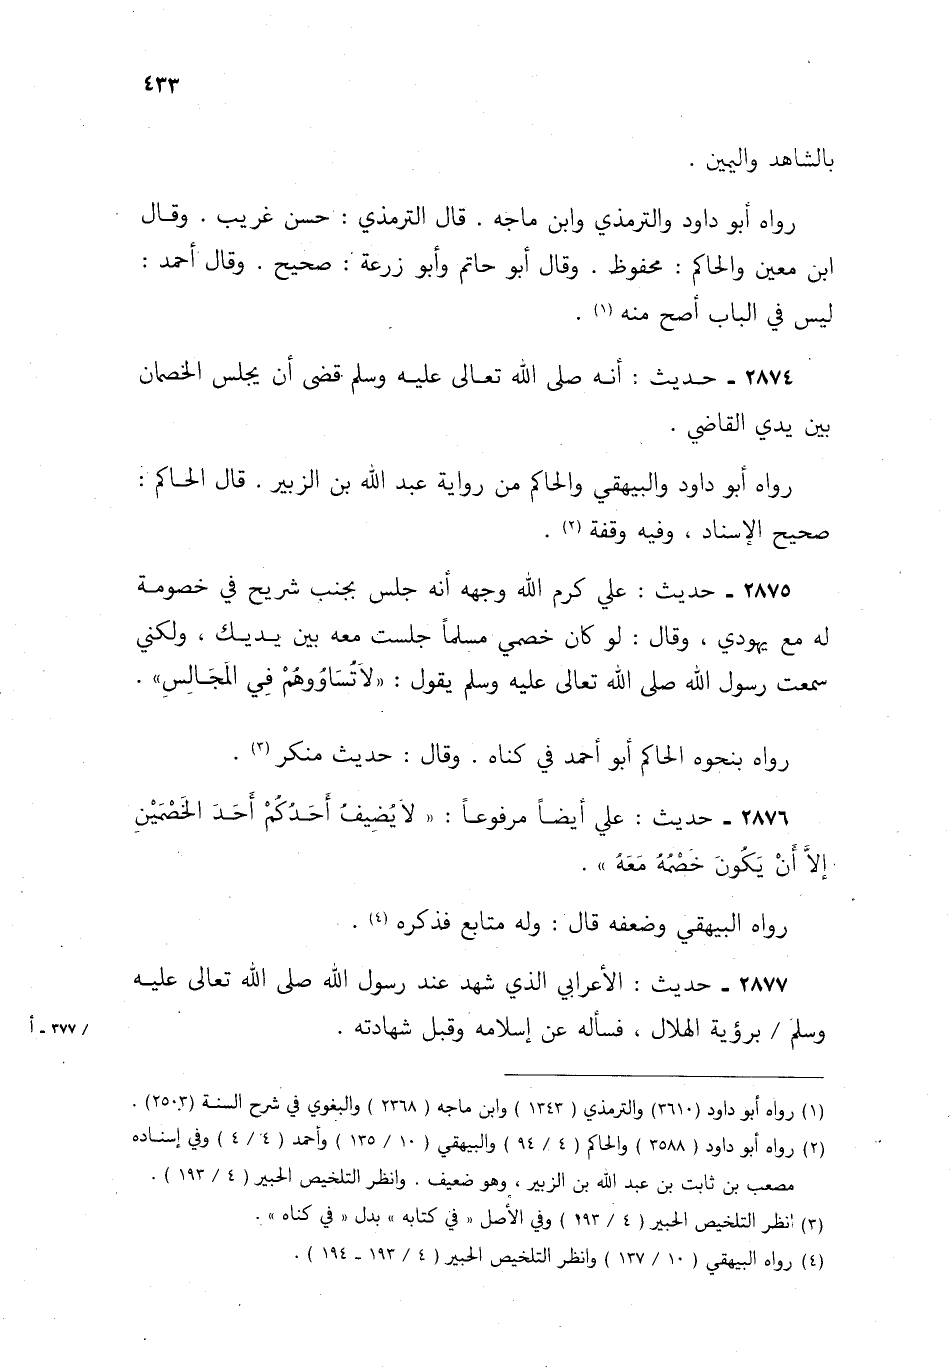 ٤٣٣
بالشاهد واليمين .
رواه أبو داود والترمذي وابن ماجه . قال الترمذي : حسن غريب . وقال
ابن معين والحاكم : محفوظ . وقال أبو حاتم وأبو زرعة : صحيح . وقال أحمد :
ليس في الباب أصح منه (١) .
٢٨٧٤ ـ حديث : أنه صلى الله تعالى عليه وسلم قضى أن يجلس الخصمان
بين يدي القاضي .
رواه أبو داود والبيهقي والحاكم من رواية عبد الله بن الزبير . قال الحاكم :
صحيح الإسناد ، وفيه وقفة (٢) .
٢٨٧٥ ـ حديث : علي كرم الله وجهه أنه جلس بجنب شريح في خصومة
له مع يهودي ، وقال : لو كان خصمي مسلماً جلست معه بين يديك ، ولكني
سمعت رسول الله صلى الله تعالى عليه وسلم يقول : «لاَتُسَاوُوهُمْ فِي المَجَالِسِ» .
رواه بنحوه الحاكم أبو أحمد في كناه . وقال : حديث منكر (٣) .
٢٨٧٦ ـ حديث : علي أيضاً مرفوعاً : « لاَيُضِيفُ أَحَدُكُمْ أَحَدَ الخَصْمَيْنِ
إلاَّ أَنْ يَكُونَ خَصْمُهُ مَعَهُ » .
رواه البيهقي وضعفه قال : وله متابع فذكره (٤) .
٢٨٧٧ ـ حديث : الأعرابي الذي شهد عند رسول الله صلى الله تعالى عليه
وسلم / برؤية الهلال ، فسأله عن إسلامه وقبل شهادته . / ٣٧٧ ـ أ
(١) رواه أبو داود (٣٦١٠) والترمذي ( ١٣٤٣ ) وابن ماجه ( ٢٣٦٨ ) والبغوي في شرح السنة (٢٥٠٣) .
(٢) رواه أبو داود ( ٣٥٨٨ ) والحاكم ( ٤ / ٩٤ ) والبيهقي ( ١٠ / ١٣٥ ) وأحمد ( ٤ / ٤ ) وفي إسناده
مصعب بن ثابت بن عبد الله بن الزبير ، وهو ضعيف . وانظر التلخيص الحبير ( ٤ / ١٩٣ ) .
(٣) انظر التلخيص الحبير ( ٤ / ١٩٣ ) وفي الأصل « في كتابه » بدل « في كناه » .
(٤) رواه البيهقي ( ١٠ / ١٣٧ ) وانظر التلخيص الحبير ( ٤ / ١٩٣ ـ ١٩٤ ) .